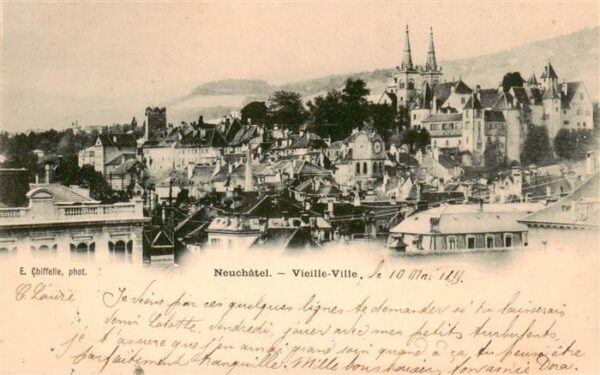 E. Chiffelle, phot.
Neuchâtel. – Vieille-Ville.
le 10 Mai
Je viens par ces quelques lignes te demander si tu laisserais
venir Lolotte, vendredi, jouer avec mes petits turbulents,
je t'assure que j'en aurai grand soin quand à ça tu peux être
parfaitement tranquille. Mille bons baisers ton amie Dora.